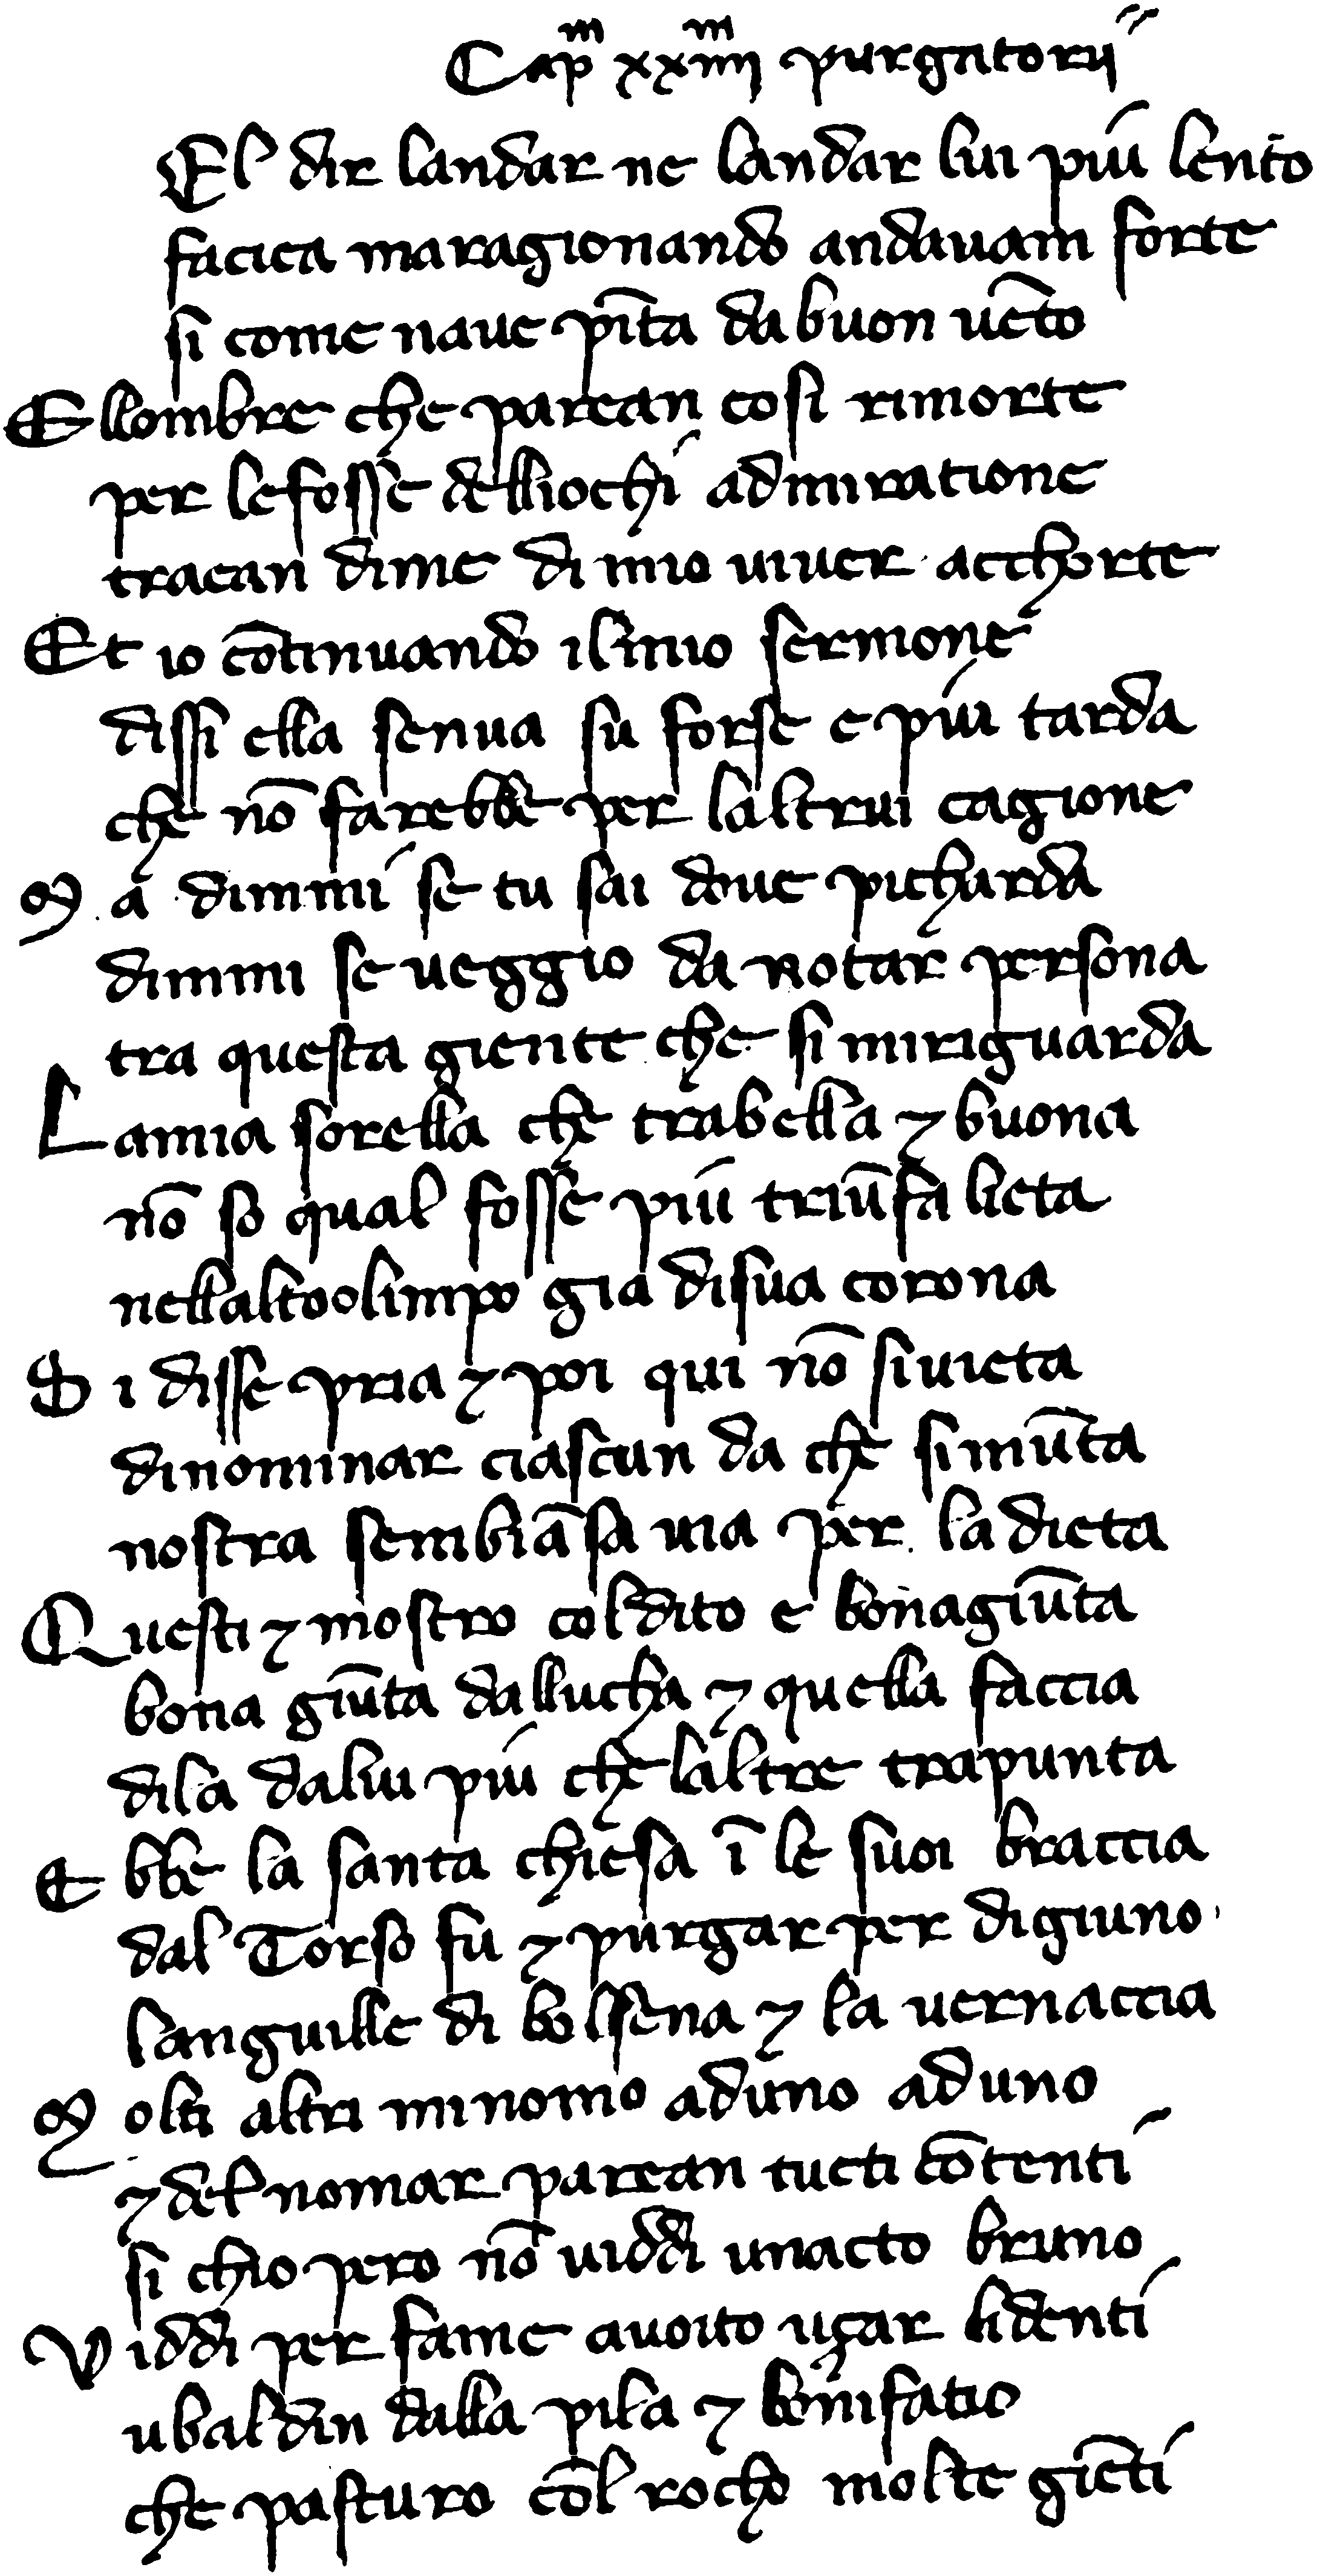 Capᵐ xxiiijᵐ purgatorij
El dir landar ne landar lui piu lento
faciea maragionando andauam forte
si come naue pīta da buon uēto
Ellombre che parean cosi rimorte
per lefosse delliochi admiratione
traean dime di mio uiuer acchorte
Et io cōtinuando ilmio sermone
dissi ella senua su forse e piu tarda
che nō farebbe per laltrui cagione
Ma dimmi se tu sai doue picharda
dimmi se ueggio da notar persona
tra questa giente che si miriguarda
Lamia sorella che trabella ⁊ buona
nō so qual fosse piu triūfa lieta
nellaltoolimpo gia disua corona
Si disse pria ⁊ poi qui nō siuieta
dinominar ciascun da che simūta
nostra sembiāsa uia per la dieta
Questi ⁊ mostro coldito e bonagiūta
bona giūta dallucha ⁊ quella faccia
dila dalui piu che laltre trapunta
Ebbe la santa chiesa ī le suoi braccia
dal Torso fu ⁊ purgar per digiuno
languille di bolsena ⁊ la uernaccia
Molti altri minomo aduno aduno
⁊ del nomar parean tucti cōtenti
si chio pero nō uiddi unacto bruno
Viddi per fame auoito uçar lidenti
ubaldin dalla pila ⁊ bonifatio
che pasturo cōl rocho molte giēti